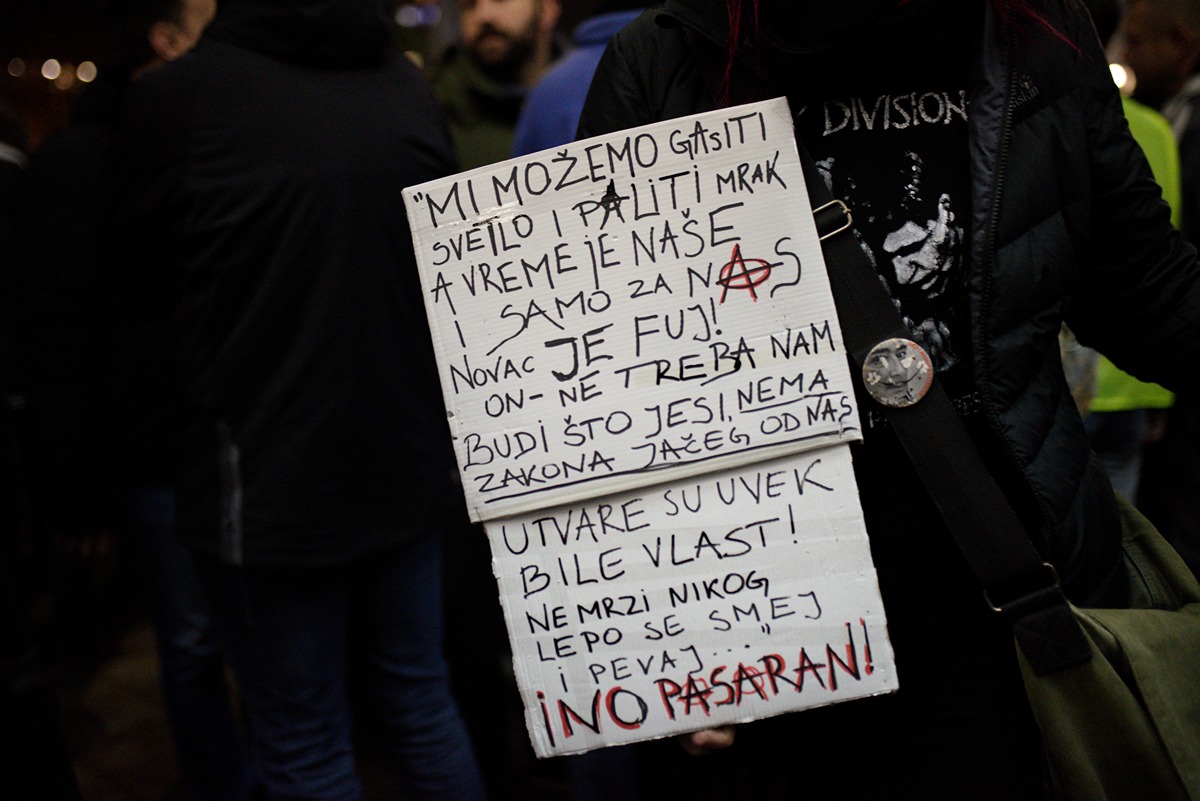 "MI MOŽEMO GAsITI
SVETLO I PALITI MRAK
A VREME JE NAŠE
I SAMO ZA NAS
NOVAC JE FUJ!
ON- NE TREBA NAM
BUDI ŠTO JESI, NEMA
ZAKONA JAČEG OD NAS
UTVARE SU UVEK
BILE VLAST!
NE MRZI NIKOG
LEPO SE SMEJ
i PEVAJ..."
¡NO PASARAN!
DIVISION